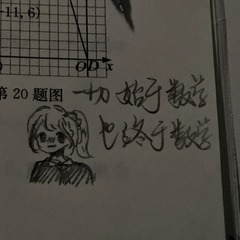 -11,6)
O D x
第20题图
一切始于数学
也终于数学